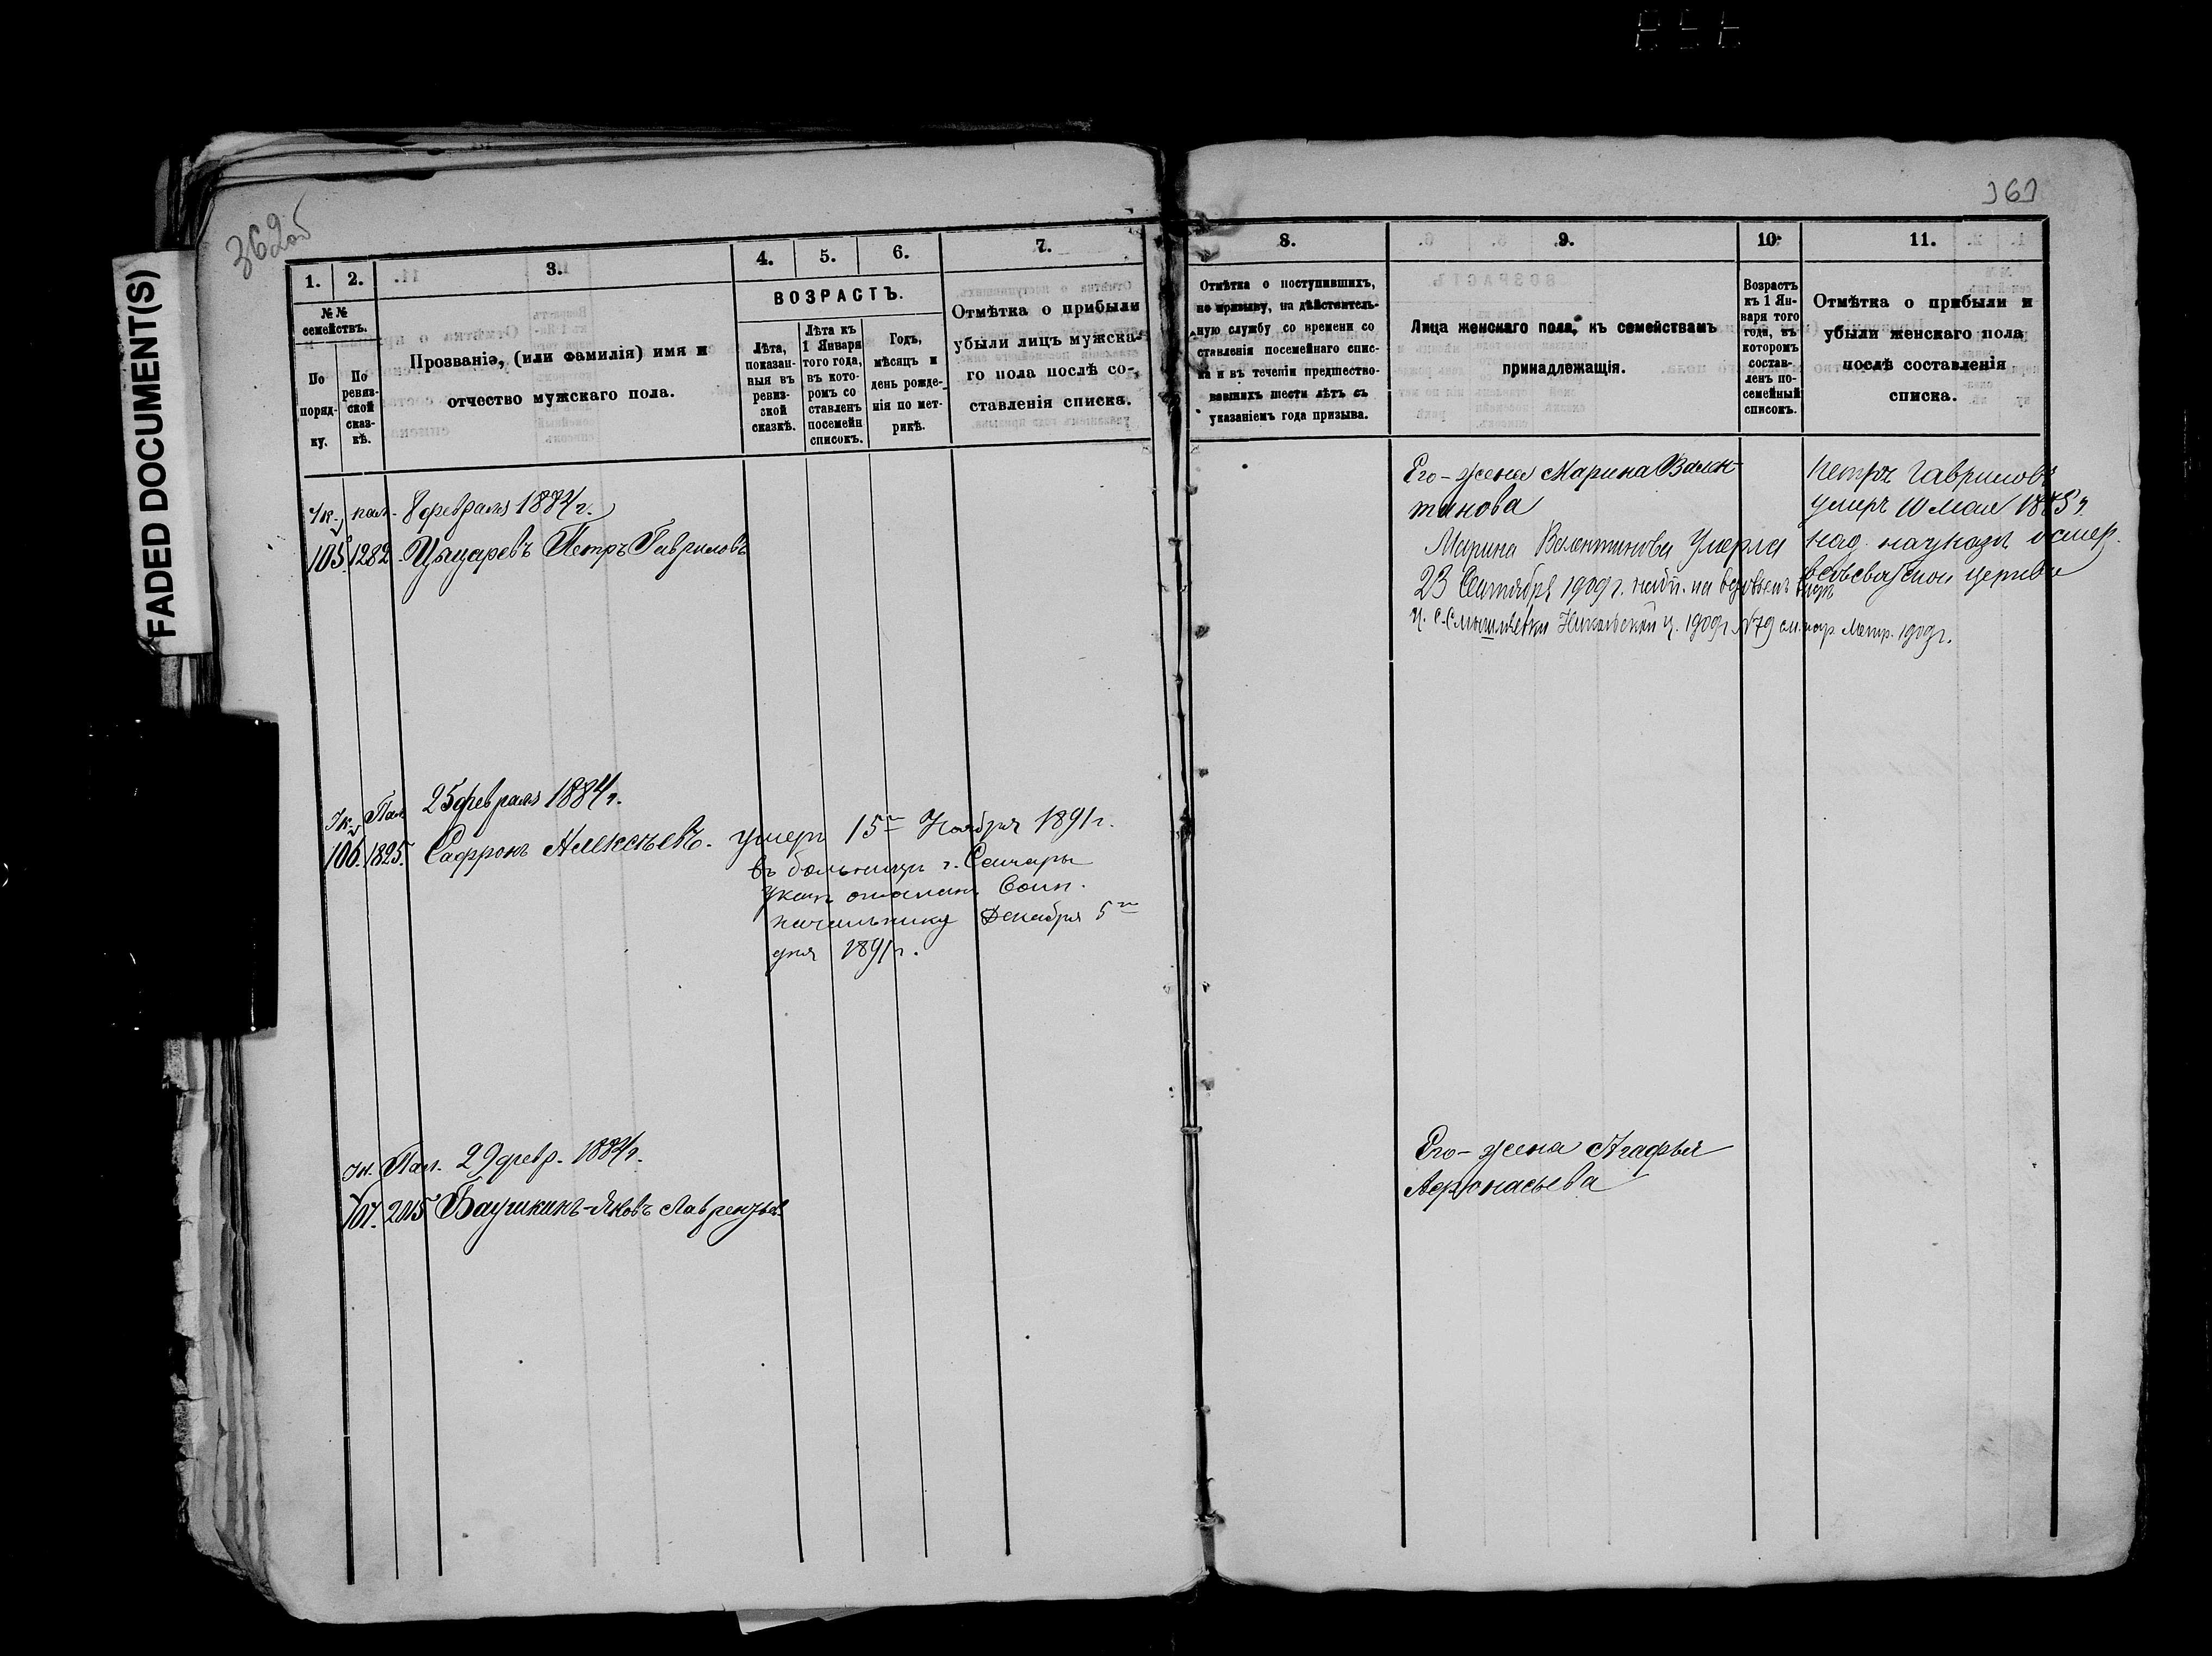 FADED DOCUMENT(S)
362об
1.
2.
3.
4.
5.
6.
7.
№№
семействъ.
По
поряд-
ку.
По
ревиз-
ской
сказ-
кѣ.
Прозваніэ, (или фамилія) имя и
отчество мужскаго пола.
ВОЗРАСТЪ.
Лѣта,
показан-
ныя въ
ревиз-
ской
сказкѣ.
Лѣта къ
1 Января
того года,
въ кото-
ромъ со
ставленъ
посемейн
списокъ.
Годъ,
мѣсяцъ и
день рожде-
нія по мет-
рикѣ.
Отмѣтка о прибыли
убыли лицъ мужска-
го пола послѣ со-
ставленія списка.
8 февраля 1884 г.
105. 1282. Петръ Гавриловъ
25 февраля 1884 г.
106. 1825. Сафронъ Алексѣевъ. умеръ 15го Ноября 1891 г.
въ больницѣ г. Самары
Воин.
начальнику Декабря 5го
дня 1891 г.
29 февр. 1884 г.
107. 2015 Баушкинъ-Яковъ Лаврентьев.
363
8.
9.
10.
11.
Отмѣтка о поступившихъ,
по призыву, на дѣйствитель-
ную службу со времени со
ставленія посемейнаго спис-
ка и въ теченіи предшество-
вавшихъ шести лѣтъ съ
указаніемъ года призыва.
Лица женскаго пола, къ семействамъ
принадлежащія.
Возрастъ
къ 1 Ян-
варя того
года, въ
которомъ
состав-
ленъ по-
семейный
списокъ.
Отмѣтка о прибыли и
убыли женскаго пола
послѣ составленія
списка.
Его-жена Марина Вален-
тинова
Марина Валентинова Умерла
23 Сентября 1909 г.
Никольской ц. 1909 г. №79 Метр. 1909 г.
Петръ Гавриловъ
умеръ 10 мая
церкви
Его-жена Агафья
Афонасьева